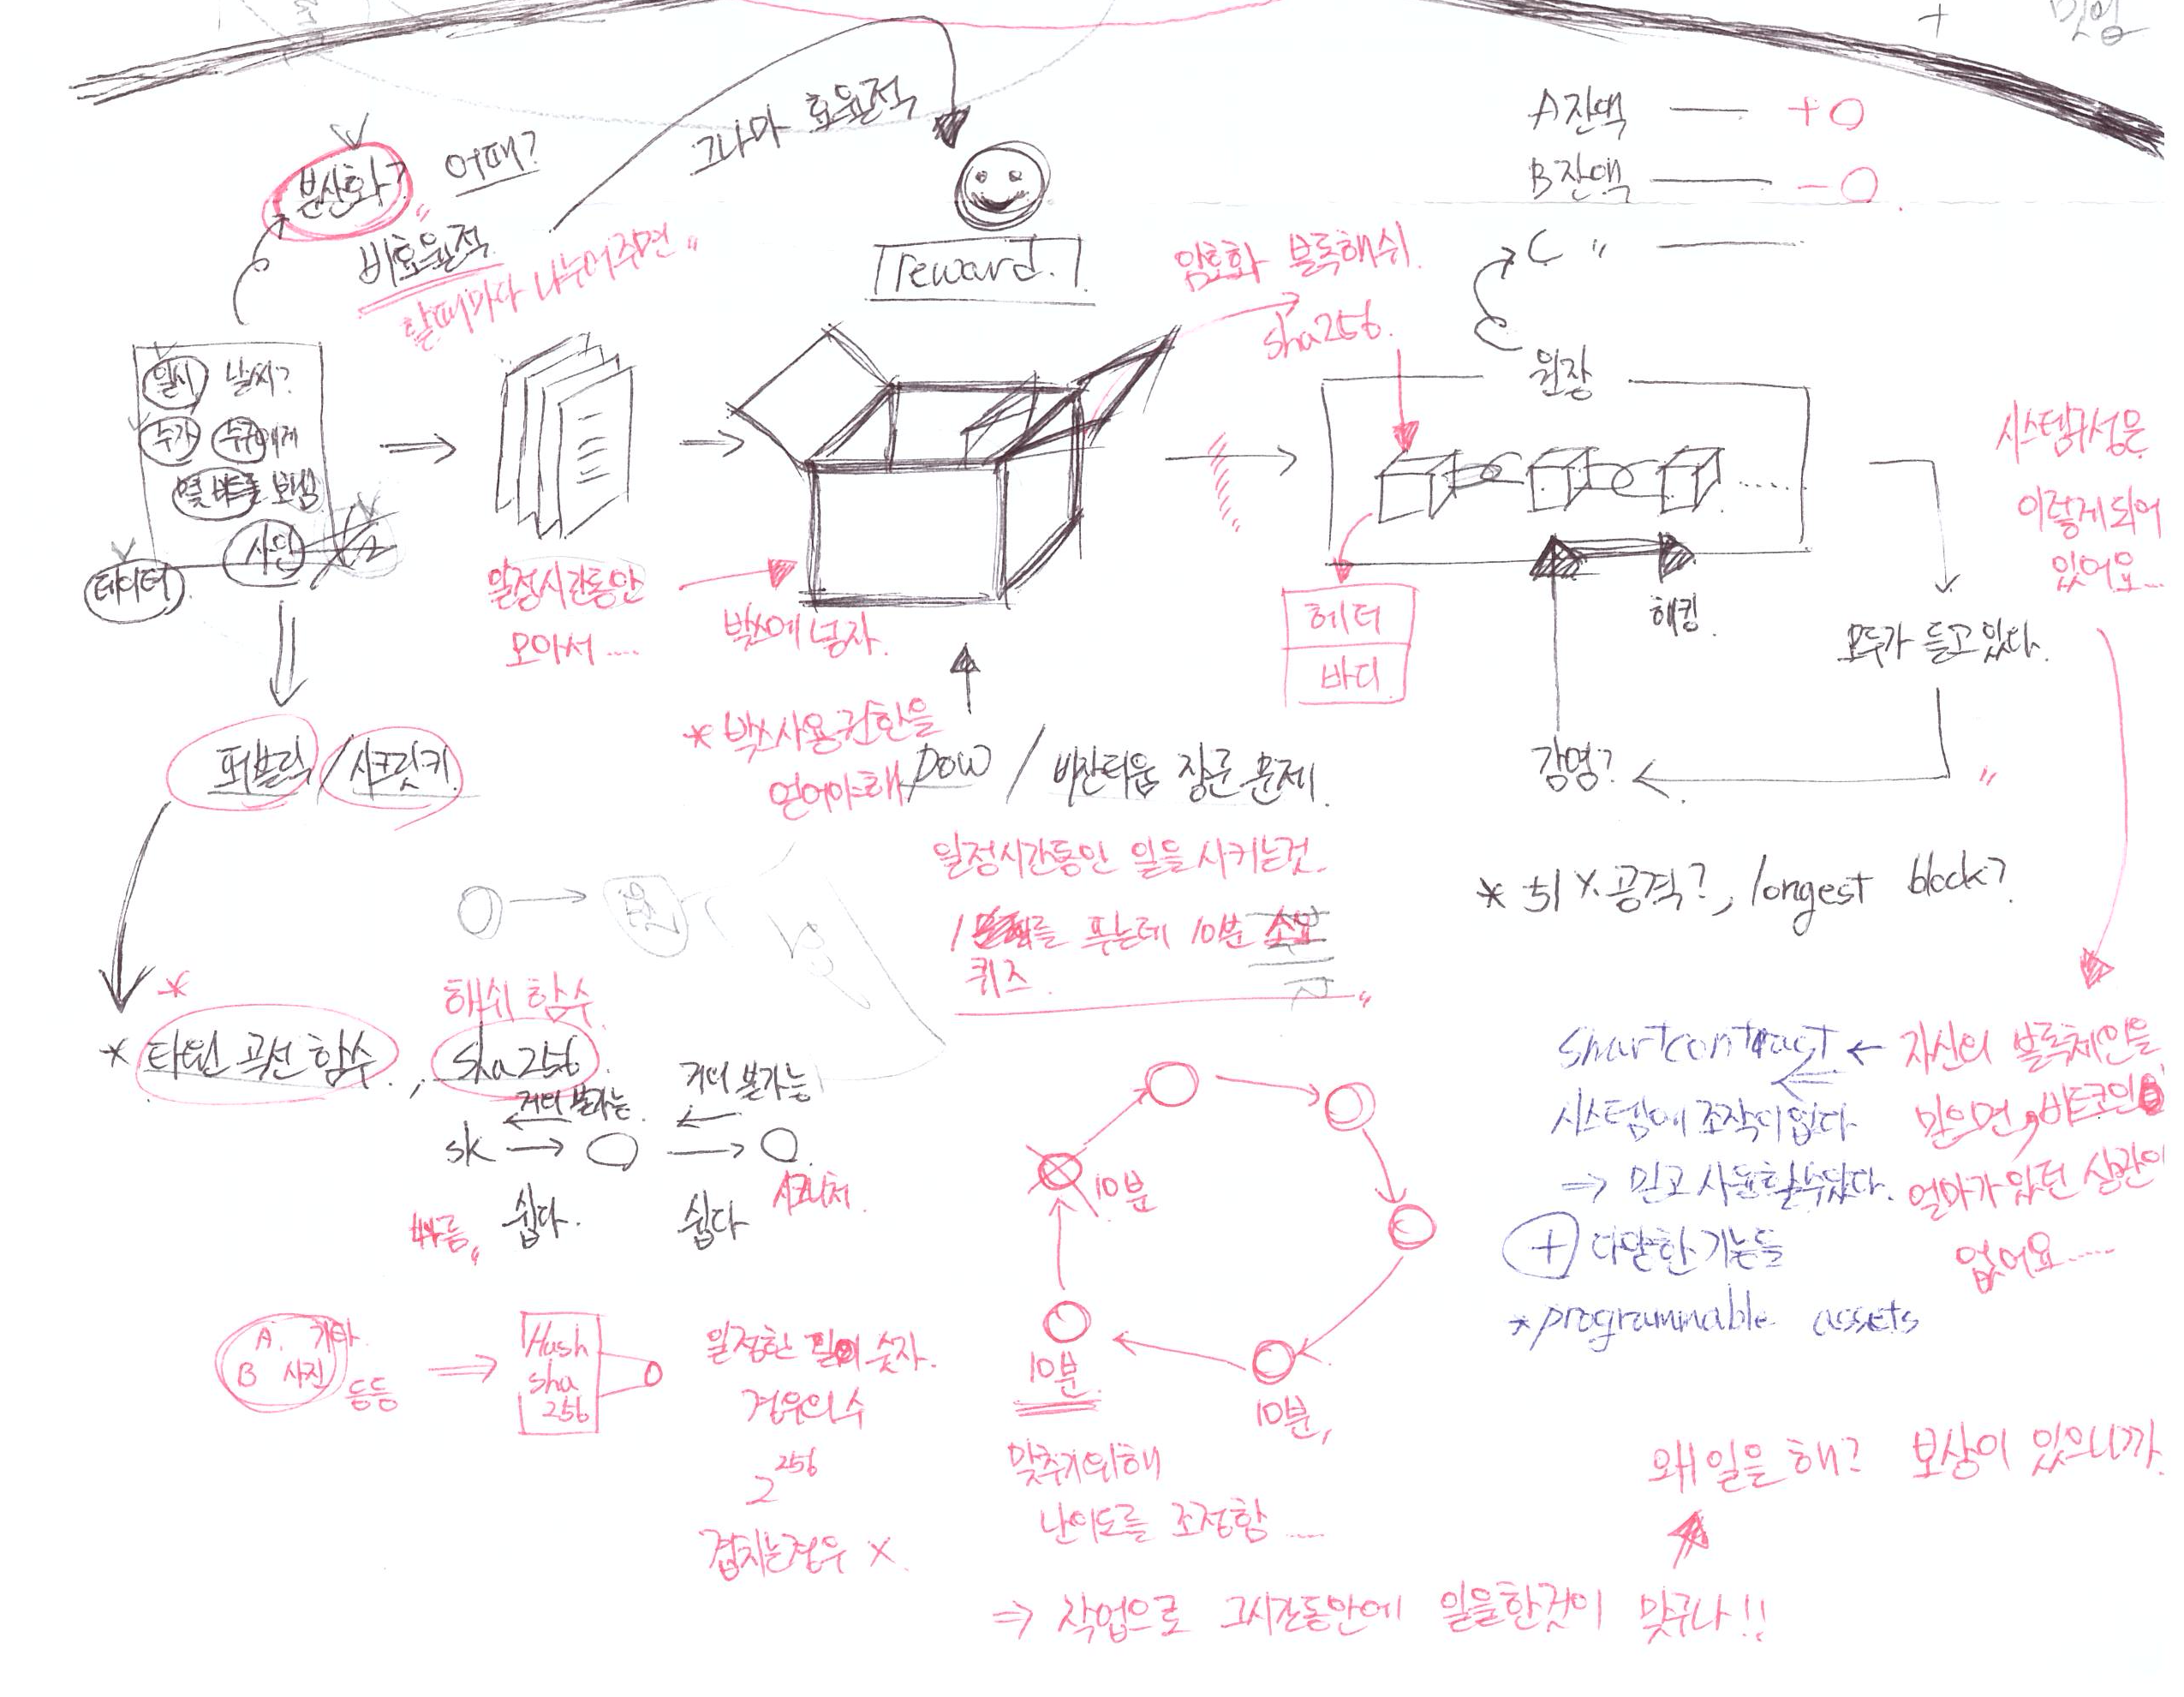 분산화?
어때?
비효율적
할때마다 나누어주면
그나마 효율적
reward.
A잔액 +O
B잔액 -O
C "
암호화 블록해쉬.
sha256.
원장
일시 날씨?
누가 누구에게
몇 보냄
사인
데이터
일정시간동안
모아서 ....
박스에 넣자.
* 박스사용권한을
얻어야해
POW / 비잔티움 장군 문제.
일정시간동안 일을 시키는것.
푸는데 10분 소요
퀴즈
헤더
바디
해킹.
모두가 들고있다.
감명?
시스템구성은
이렇게되어
있어요...
퍼블릭 / 시크릿키
* 51% 공격?, longest block?
해쉬 함수.
* 타원 곡선 함수, sha256
거의 불가능. 거의 불가능
sk → O → O
쉽다. 쉽다
시그니처
10분
10분
10분,
맞추기위해
난이도를 조정함 ....
A. 기타.
B 사진
등등
Hash
sha
256
일정한 숫자.
경우의수
2^256
겹치는경우 X.
smartcontract ← 자신의 블록체인을
시스템에 조작이없다
믿으면, 비트코인
⇒ 믿고 사용할수있다.
얼마가 있던 상관이
없어요.....
+ 다양한기능들
*programmable assets
왜 일을 해? 보상이 있으니까.
⇒ 작업으로 그시간동안에 일을한것이 맞구나!!